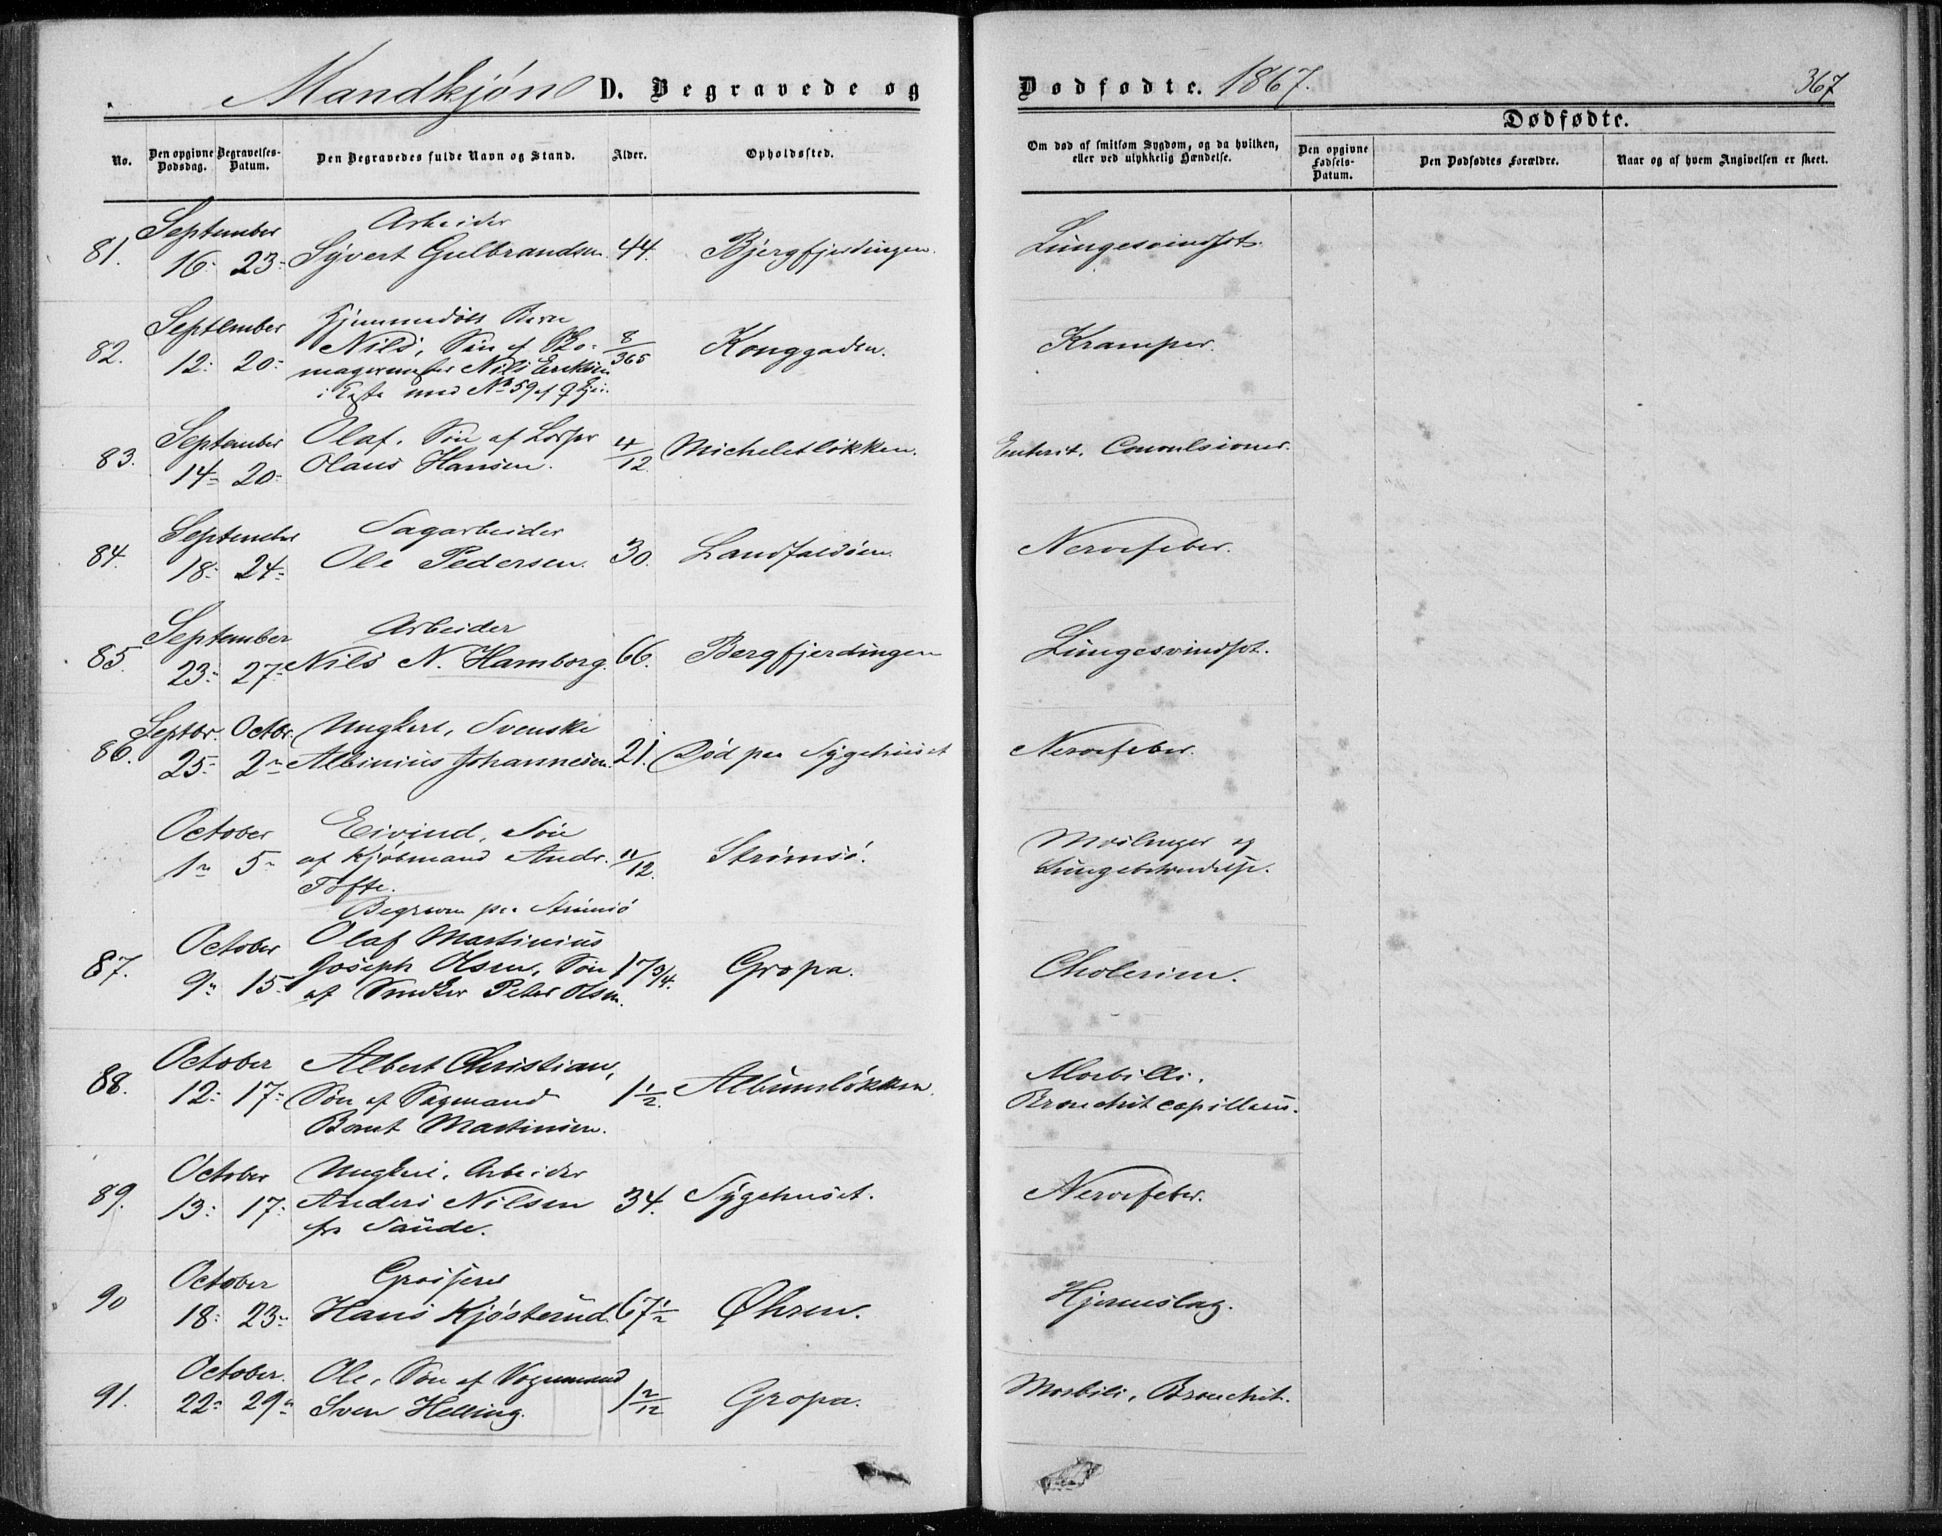 Mandkjøn D. Begravede og Dødfødte. 1867. 367
No. Den opgivne Dødsdag. Begravelses-Datum. Den Begravedes fulde Navn og Stand. Alder. Opholdssted. Om død af smitsom Sygdom, og da hvilken, eller ved ulykkelig Hændelse. Dødfødte.
Den opgivne Fødsels-Datum. Den Dødfødtes Forældre. Naar og af hvem Angivelsen er skeet.
September Arbeider
81. 16. 23. Syvert Gulbrandsen 44. Bjergfjerdingen. Lungesvindsot.
September Hjemmedøbt Barn
82. 12. 20. Nils, Søn af Sko- 8/365 Konggaden. Kramper.
magermester Nils Eriksen
i Egte med No 59 af
September Olaf, Søn af Losser
83. 14. 20. Olaus Hansen. 4/12 Micheletløkken. Enterit. Convulsioner.
September Sagarbeider
84. 18. 24. Ole Pedersen. 30. Landfaldøen. Nervefeber.
September Arbeider
85. 23. 27. Nils N. Hamborg. 66. Bergfjerdingen Lungesvindsot.
Septbr. Octbr. Ungkarl, Svenske
86. 25. 2. Albinius Johannesen. 21. Død paa Sygehuset Nervefeber.
October Eivind, Søn
1. 5. af Kjøbmand Andr. 11/12. Strømsø. Mæslinger og
Tofte. Lungebetændelse.
Begraven paa Strømsø
October Olaf Martinius
87. 9. 15. Joseph Olsen, Søn 17 3/4. Gropa. Cholerine.
af Snedker Peter Olsen.
October Albert Christian,
88. 12. 17. Søn af Sagmand 1 1/2. Albumsløkken. Morbilli.
Bernt Martinsen. Bronchit capillaris.
October Ungkarl, Arbeider
89. 13. 17. Anders Nilsen 34. Sygehuset. Nervefeber.
fra Saude.
October Grosserer
90 18. 23. Hans Kjøsterud. 67 1/2 Øhren. Hjerneslag.
October. Ole, Søn af Vognmand
91. 22. 29. Sven Helling. 1 2/12 Gropa. Morbili, Bronchit.